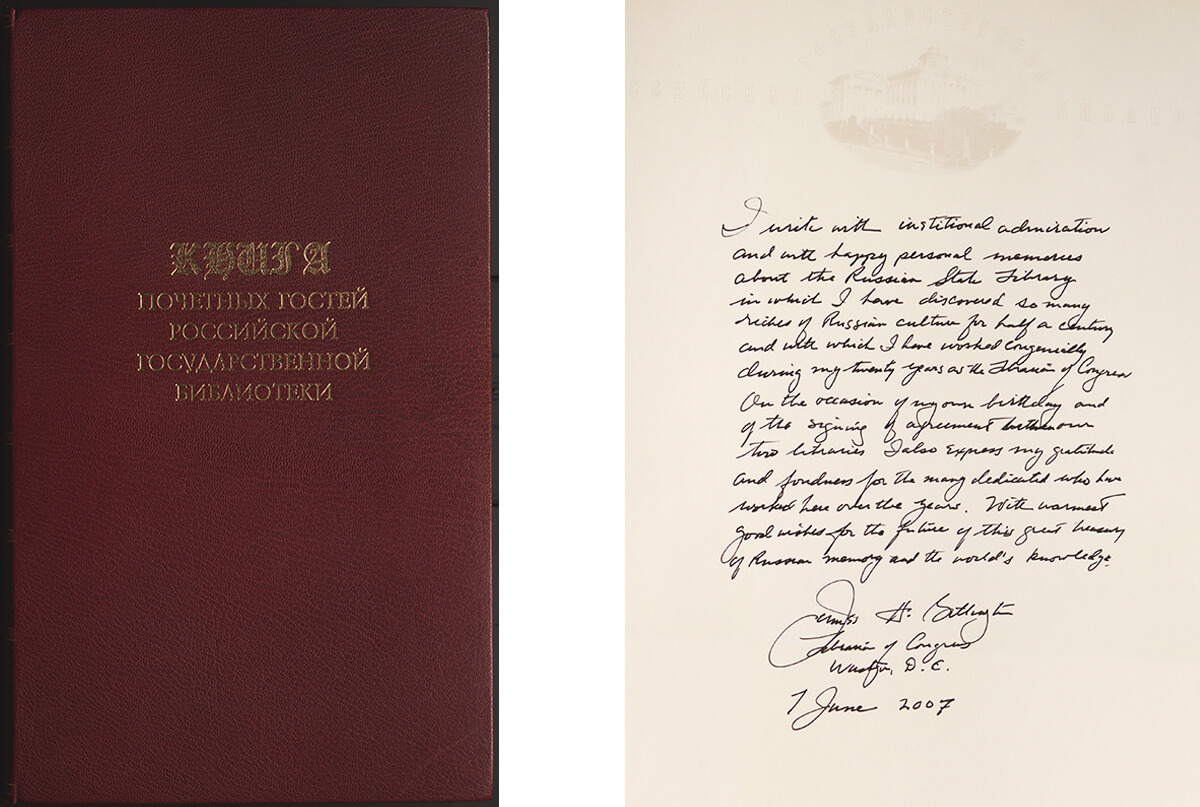 КНИГА
ПОЧЕТНЫХ ГОСТЕЙ
РОССИЙСКОЙ
ГОСУДАРСТВЕННОЙ
БИБЛИОТЕКИ
ГОСУДАРСТВЕННАЯ
I write with institional admiration
and with happy personal memories
about the Russian State Library
in which I have discovered so many
riches of Russian culture for half a century
and with which I have worked congenially
during my twenty years as the Librarian of Congress
On the occasion of my own birthday and
of the signing of agreement between our
two libraries I also express my gratitude
and fondness for the many dedicated who have
worked here over the years. With warmest
good wishes for the future of this great treasury
of Russian memory and the world's knowledge.
James H. Billington
Librarian of Congress
D.C.
June 2007